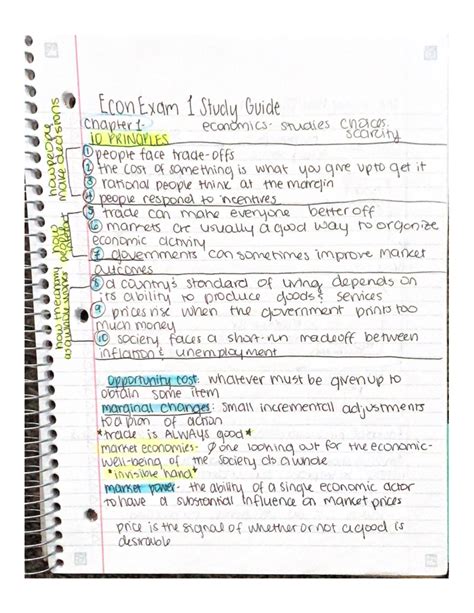 Econ Exam 1 Study Guide
Chapter 1- economics- studies choices.
scarcity
10 PRINCIPLES
how people
make decisions
① people face trade-offs
② the cost of something is what you give up to get it
③ rational people think at the margin
④ people respond to incentives
how
people
⑤ trade can make everyone better off
⑥ markets are usually a good way to organize
economic activity
⑦ governments can sometimes improve market
outcomes
how the economy
as a whole works
⑧ a country's standard of living depends on
its ability to produce goods & services
⑨ prices rise when the government prints too
much money
⑩ society faces a short-run tradeoff between
inflation & unemployment
opportunity cost: whatever must be given up to
obtain some item
marginal changes: small incremental adjustments
to a plan of action
*trade is ALWAYS good*
market economies- ∅ one looking out for the economic-
well-being of the society as a whole
*invisible hand*
market power- the ability of a single economic actor
to have a substantial influence on market prices
price is the signal of whether or not a good is
desirable